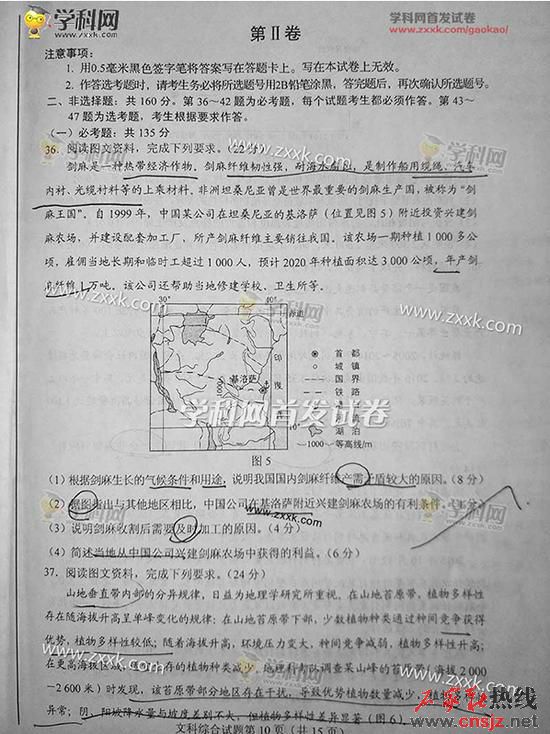 学科网
www.zxxk.com
学科网首发试卷
www.zxxk.com/gaokao/
第Ⅱ卷
注意事项：
1. 用0.5毫米黑色签字笔将答案写在答题卡上。写在本试卷上无效。
2. 作答选考题时，请考生务必将所选题号用2B铅笔涂黑，答完题后，再次确认所选题号。
二、非选择题：共 160 分。第 36～42 题为必考题，每个试题考生都必须作答。第 43～
47 题为选考题，考生根据要求作答。
（一）必考题：共 135 分
36. 阅读图文资料，完成下列要求。（22 分）
剑麻是一种热带经济作物。剑麻纤维韧性强，耐海水，是制作船用缆绳、汽车
内衬、光缆衬料等的上乘材料。非洲坦桑尼亚曾是世界最重要的剑麻生产国，被称为“剑
麻王国”。自 1999 年，中国某公司在坦桑尼亚的基洛萨（位置见图 5）附近投资兴建剑
麻农场，并建设配套加工厂，所产剑麻纤维主要销往我国。该农场一期种植 1 000 多公
顷，雇佣当地长期和临时工超过 1 000 人，预计 2020 年种植面积达 3 000 公顷，年产剑
麻纤维 1 万吨。该公司还帮助当地修建学校、卫生所等。
30°
40°
赤道
印
度
洋
10°
基洛萨
1000
首都
城镇
国界
铁路
河流
湖泊
～1000～ 等高线/m
学科网首发试卷
图 5
(1) 根据剑麻生长的气候条件和用途，说明我国国内剑麻纤维产需矛盾较大的原因。（8 分）
(2) 据图指出与其他地区相比，中国公司在基洛萨附近兴建剑麻农场的有利条件。（4 分）
(3) 说明剑麻收割后需要及时加工的原因。（4 分）
(4) 简述当地从中国公司兴建剑麻农场中获得的利益。（6 分）
37. 阅读图文资料，完成下列要求。（24 分）
山地垂直带内部的分异规律，日益为地理学研究所重视。在山地苔原带，植物多样性
存在随海拔升高呈单峰变化的规律：在山地苔原带下部，少数植物种类通过种间竞争获得
优势，植物多样性较低；随着海拔升高，环境压力变大，种间竞争减弱，植物多样性升高；
在更高海拔区域，能够生存的植物种类减少。地理科考队调查某山峰的苔原带（海拔 2 000
～2 600 米）时发现，该苔原带部分地区存在干扰，导致优势植物数量减少，植物多样性
异常；阴、阳坡降水量与坡度差别不大，但植物多样性差异显著（图 6）。
文科综合试题第 10 页（共 15 页）
人事社热线
www.cnsjz.net